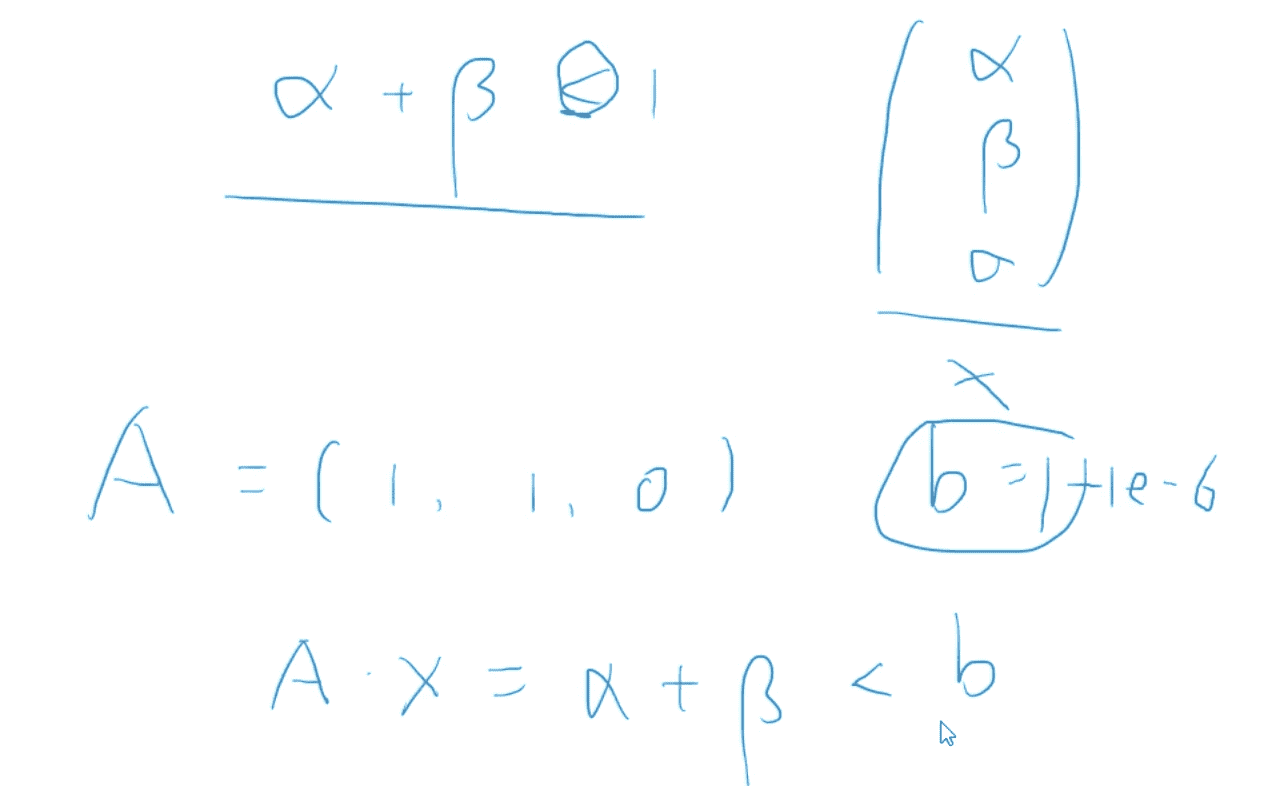 α + β < 1
α
β
σ
x
A = (1, 1, 0)
b = 1+1e-6
A · x = α + β < b